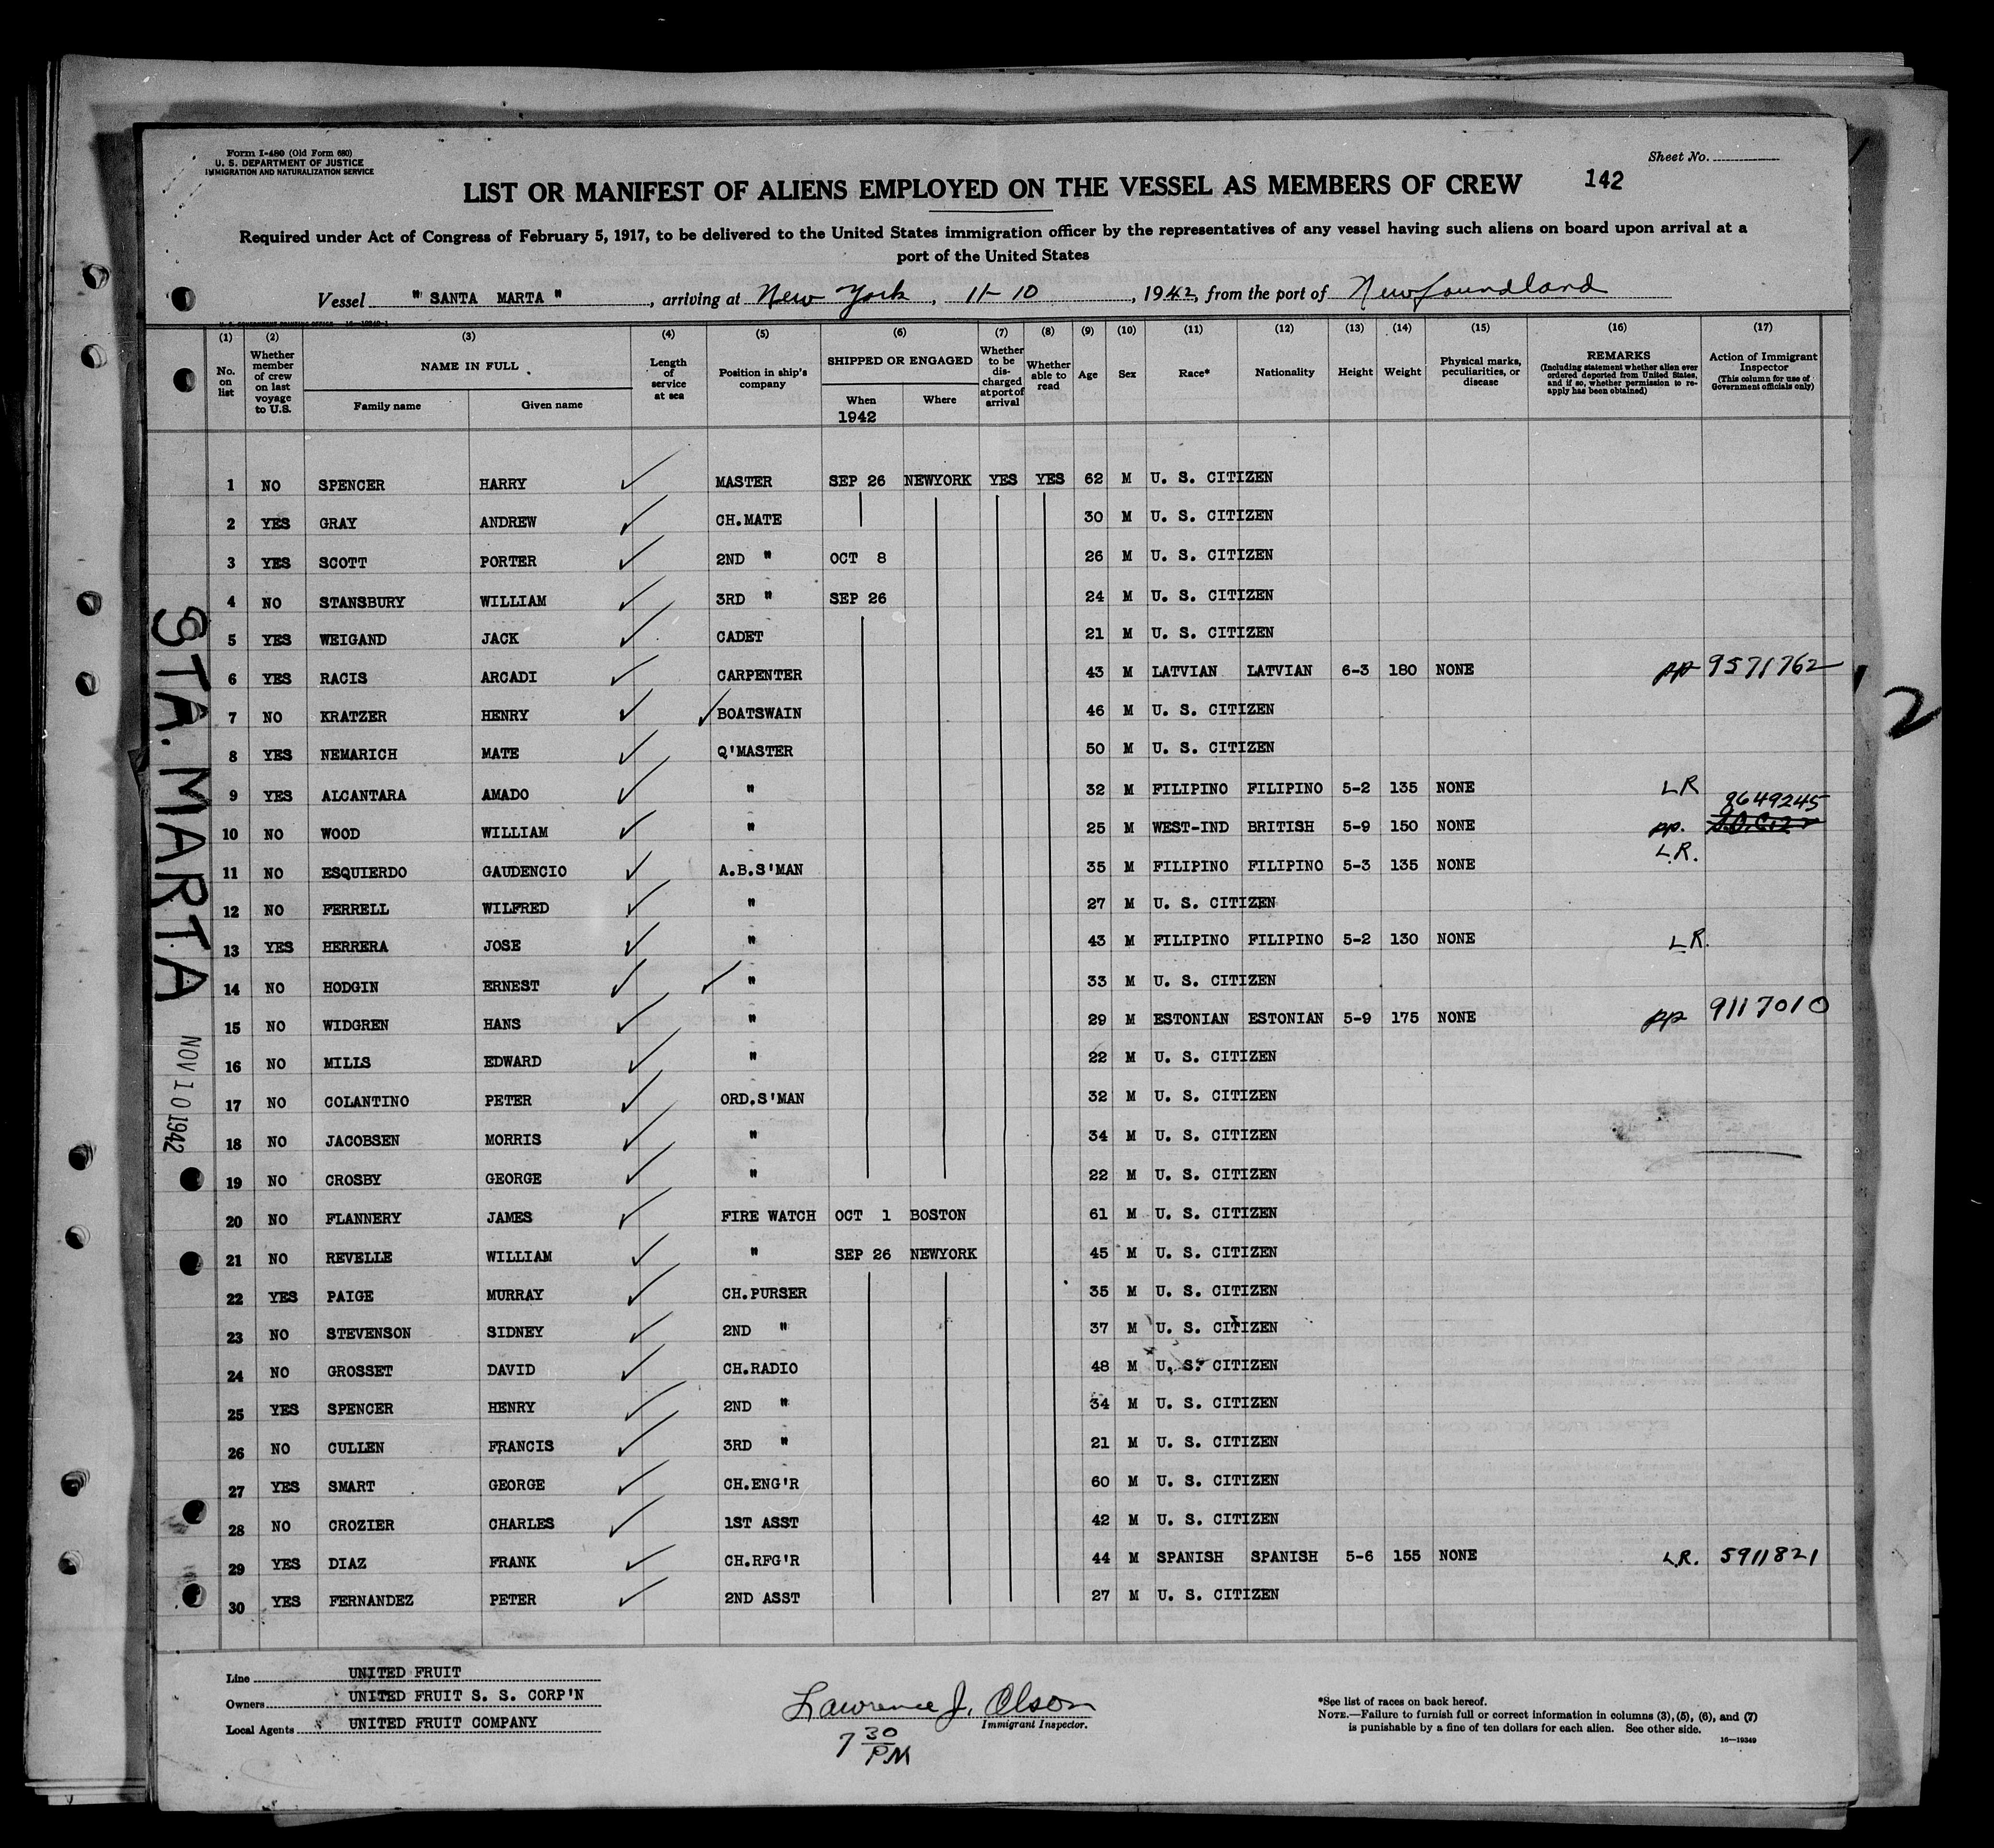 Form I-480 (Old Form 680)
U. S. DEPARTMENT OF JUSTICE
IMMIGRATION AND NATURALIZATION SERVICE
Sheet No.
LIST OR MANIFEST OF ALIENS EMPLOYED ON THE VESSEL AS MEMBERS OF CREW 142
Required under Act of Congress of February 5, 1917, to be delivered to the United States immigration officer by the representatives of any vessel having such aliens on board upon arrival at a
port of the United States
Vessel " SANTA MARTA ", arriving at New York, 11-10, 1942, from the port of Newfoundland
(1) (2) (3) (4) (5) (6) (7) (8) (9) (10) (11) (12) (13) (14) (15) (16) (17)
No. on list
Whether member of crew on last voyage to U.S.
NAME IN FULL
Family name Given name
Length of service at sea
Position in ship's company
SHIPPED OR ENGAGED
When Where
1942
Whether to be discharged at port of arrival
Whether able to read
Age
Sex
Race*
Nationality
Height
Weight
Physical marks, peculiarities, or disease
REMARKS
(Including statement whether alien ever ordered deported from United States, and if so, whether permission to reapply has been obtained)
Action of Immigrant Inspector
(This column for use of Government officials only)
1 NO SPENCER HARRY MASTER SEP 26 NEWYORK YES YES 62 M U. S. CITIZEN
2 YES GRAY ANDREW CH.MATE 30 M U. S. CITIZEN
3 YES SCOTT PORTER 2ND " OCT 8 26 M U. S. CITIZEN
4 NO STANSBURY WILLIAM 3RD " SEP 26 24 M U. S. CITIZEN
5 YES WEIGAND JACK CADET 21 M U. S. CITIZEN
6 YES RACIS ARCADI CARPENTER 43 M LATVIAN LATVIAN 6-3 180 NONE pp 9571762
7 NO KRATZER HENRY BOATSWAIN 46 M U. S. CITIZEN
8 YES NEMARICH MATE Q'MASTER 50 M U. S. CITIZEN
9 YES ALCANTARA AMADO " 32 M FILIPINO FILIPINO 5-2 135 NONE LR
10 NO WOOD WILLIAM " 25 M WEST-IND BRITISH 5-9 150 NONE pp. 9649245
11 NO ESQUIERDO GAUDENCIO A.B.S'MAN 35 M FILIPINO FILIPINO 5-3 135 NONE L.R.
12 NO FERRELL WILFRED " 27 M U. S. CITIZEN
13 YES HERRERA JOSE " 43 M FILIPINO FILIPINO 5-2 130 NONE LR.
14 NO HODGIN ERNEST " 33 M U. S. CITIZEN
15 NO WIDGREN HANS " 29 M ESTONIAN ESTONIAN 5-9 175 NONE pp 9117010
16 NO MILLS EDWARD " 22 M U. S. CITIZEN
17 NO COLANTINO PETER ORD.S'MAN 32 M U. S. CITIZEN
18 NO JACOBSEN MORRIS " 34 M U. S. CITIZEN
19 NO CROSBY GEORGE " 22 M U. S. CITIZEN
20 NO FLANNERY JAMES FIRE WATCH OCT 1 BOSTON 61 M U. S. CITIZEN
21 NO REVELLE WILLIAM " SEP 26 NEWYORK 45 M U. S. CITIZEN
22 YES PAIGE MURRAY CH.PURSER 35 M U. S. CITIZEN
23 NO STEVENSON SIDNEY 2ND " 37 M U. S. CITIZEN
24 NO GROSSET DAVID CH.RADIO 48 M U. S. CITIZEN
25 YES SPENCER HENRY 2ND " 34 M U. S. CITIZEN
26 NO CULLEN FRANCIS 3RD " 21 M U. S. CITIZEN
27 YES SMART GEORGE CH.ENG'R 60 M U. S. CITIZEN
28 NO CROZIER CHARLES 1ST ASST 42 M U. S. CITIZEN
29 YES DIAZ FRANK CH.RFG'R 44 M SPANISH SPANISH 5-6 155 NONE L.R. 5911821
30 YES FERNANDEZ PETER 2ND ASST 27 M U. S. CITIZEN
STA. MARTA
NOV 10 1942
2
Line UNITED FRUIT
Owners UNITED FRUIT S. S. CORP'N
Local Agents UNITED FRUIT COMPANY
Lawrence J. Olson
Immigrant Inspector.
7 30 PM
*See list of races on back hereof.
NOTE.—Failure to furnish full or correct information in columns (3), (5), (6), and (7)
is punishable by a fine of ten dollars for each alien. See other side.
16—19349